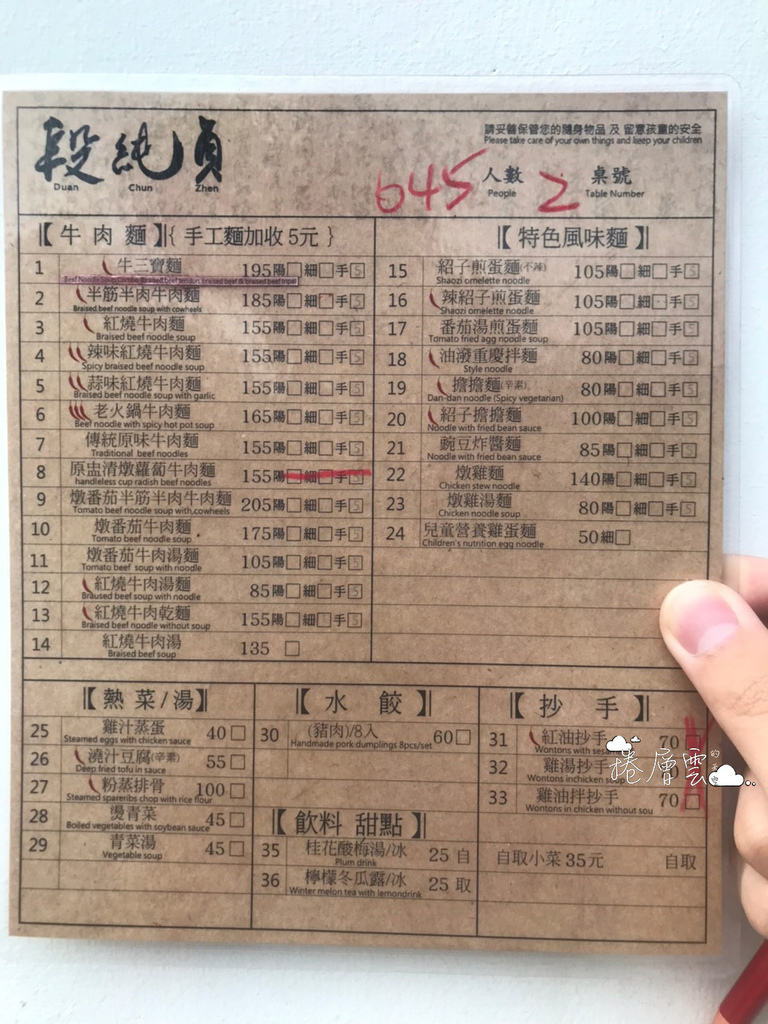 段純貞
Duan Chun Zhen
請妥善保管您的隨身物品 及 留意孩童的安全
Please take care of your own things and keep your children
645 人數 2 桌號
People Table Number
【牛肉麵】{ 手工麵加收 5元 }
1 牛三寶麵 195 陽□ 細□ 手5
2 半筋半肉牛肉麵 185 陽□ 細□ 手5
Braised beef noodle soup with cowheels
3 紅燒牛肉麵 155 陽□ 細□ 手5
Braised beef noodle soup
4 辣味紅燒牛肉麵 155 陽□ 細□ 手5
Spicy braised beef noodle soup
5 蒜味紅燒牛肉麵 155 陽□ 細□ 手5
Braised beef noodle soup with garlic
6 老火鍋牛肉麵 165 陽□ 細□ 手5
Beef noodle with spicy hot pot soup
7 傳統原味牛肉麵 155 陽□ 細□ 手5
Traditional beef noodles
8 原盅清燉蘿蔔牛肉麵 155 陽□ 細□ 手5
handleless cup radish beef noodles
9 燉番茄半筋半肉牛肉麵 205 陽□ 細□ 手5
Tomato beef noodle soup with cowheels
10 燉番茄牛肉麵 175 陽□ 細□ 手5
Tomato beef noodle soup
11 燉番茄牛肉湯麵 105 陽□ 細□ 手5
Tomato beef soup with noodle
12 紅燒牛肉湯麵 85 陽□ 細□ 手5
Braused beef soup with noodle
13 紅燒牛肉乾麵 155 陽□ 細□ 手5
Braised beef noodle without soup
14 紅燒牛肉湯 135 □
Braised beef soup
【特色風味麵】
15 紹子煎蛋麵(不辣) 105 陽□ 細□ 手5
Shaozi omelette noodle
16 辣紹子煎蛋麵 105 陽□ 細□ 手5
Shaozi omelette noodle
17 番茄湯煎蛋麵 105 陽□ 細□ 手5
Tomato fried agg noodle soup
18 油潑重慶拌麵 80 陽□ 細□ 手5
Style noodle
19 擔擔麵(辛素) 80 陽□ 細□ 手5
Dan-dan noodle (Spicy vegetarian)
20 紹子擔擔麵 100 陽□ 細□ 手5
Noodle with fried bean sauce
21 豌豆炸醬麵 85 陽□ 細□ 手5
Noodle with fried bean sauce
22 燉雞麵 140 陽□ 細□ 手5
Chicken stew noodle
23 燉雞湯麵 80 陽□ 細□ 手5
Chicken noodle soup
24 兒童營養雞蛋麵 50 細□
Children's nutrition egg noodle
【熱菜/湯】
25 雞汁蒸蛋 40 □
Steamed eggs with chicken sauce
26 澆汁豆腐(辛素) 55 □
Deep fried tofu in sauce
27 粉蒸排骨 100 □
Steamed spareribs chop with rice flour
28 燙青菜 45 □
Boiled vegetables with soybean sauce
29 青菜湯 45 □
Vegetable soup
【水餃】
30 (豬肉)/8入 60 □
Handmade pork dumplings 8pcs/set
【飲料 甜點】
35 桂花酸梅湯/冰 25 自
Plum drink
36 檸檬冬瓜露/冰 25 取
Winter melon tea with lemondrink
【抄手】
31 紅油抄手 70 □
Wontons with
32 雞湯抄手
Wontons inchicken
33 雞油拌抄手 70 □
Wontons in chicken without sou
自取小菜 35元 自取
捲層雲的